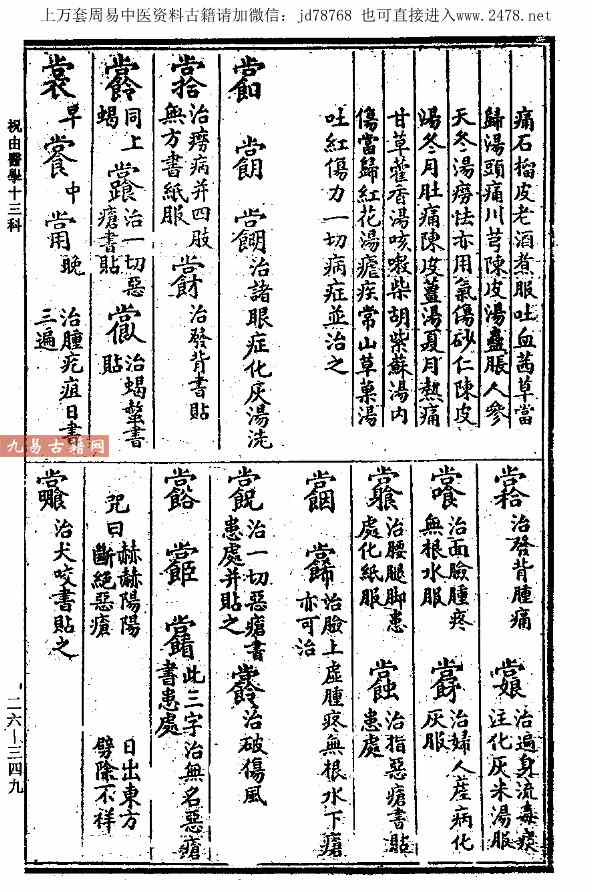 上万套周易中医资料古籍请加微信：jd78768 也可直接进入www.2478.net
痛石榴皮老酒煮服吐血茜草當
歸湯頭痛川芎陳皮湯蠱脹人參
天冬湯癆怯亦用氣傷砂仁陳皮
湯冬月肚痛陳皮薑湯夏月熱痛
甘草藿香湯咳嗽柴胡紫蘇湯內
傷當歸紅花湯瘧疾常山草菓湯
吐紅傷力一切病症並治之
治諸眼症化灰湯洗
治癆病并四肢
無方書紙服
治發背書貼
同上
蝎
治一切惡
瘡書貼
治蝎螫書
貼
早
中
晚
治腫疙疽日書
三遍
祝由醫學十三科
九易古籍网
治發背腫痛
治遍身流毒痰
注化灰米湯服
治面臉腫疼
無根水服
治婦人產病化
灰服
治腰腿脚患
處化紙服
治指惡瘡書貼
患處
治臉上虛腫疼無根水下瘡
亦可治
治一切惡瘡書
患處并貼之
治破傷風
此三字治無名惡瘡
書患處
咒曰
赫赫陽陽
日出東方
斷絕惡瘡
劈除不祥
治犬咬書貼之
二六－三四九